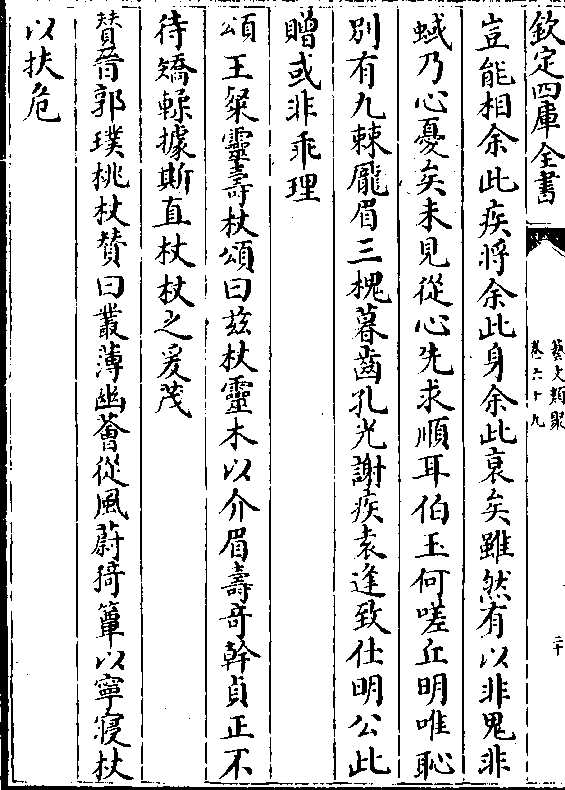 欽定四庫全書
藝文類聚
卷六十九
二十
豈能相余此疾將余此身余此哀矣雖然有以非鬼非
蜮乃心憂矣未見從心先求順耳伯玉何嗟丘明唯恥
別有九棘龎眉三槐暮齒孔光謝疾袁逢致仕明公此
贈或非乖理
頌王粲靈壽杖頌曰兹杖靈木以介眉壽竒幹貞正不
待矯輮據斯直杖杖之爰茂
賛晉郭璞桃杖賛曰叢薄幽薈從風蔚猗簞以寧寝杖
以扶危